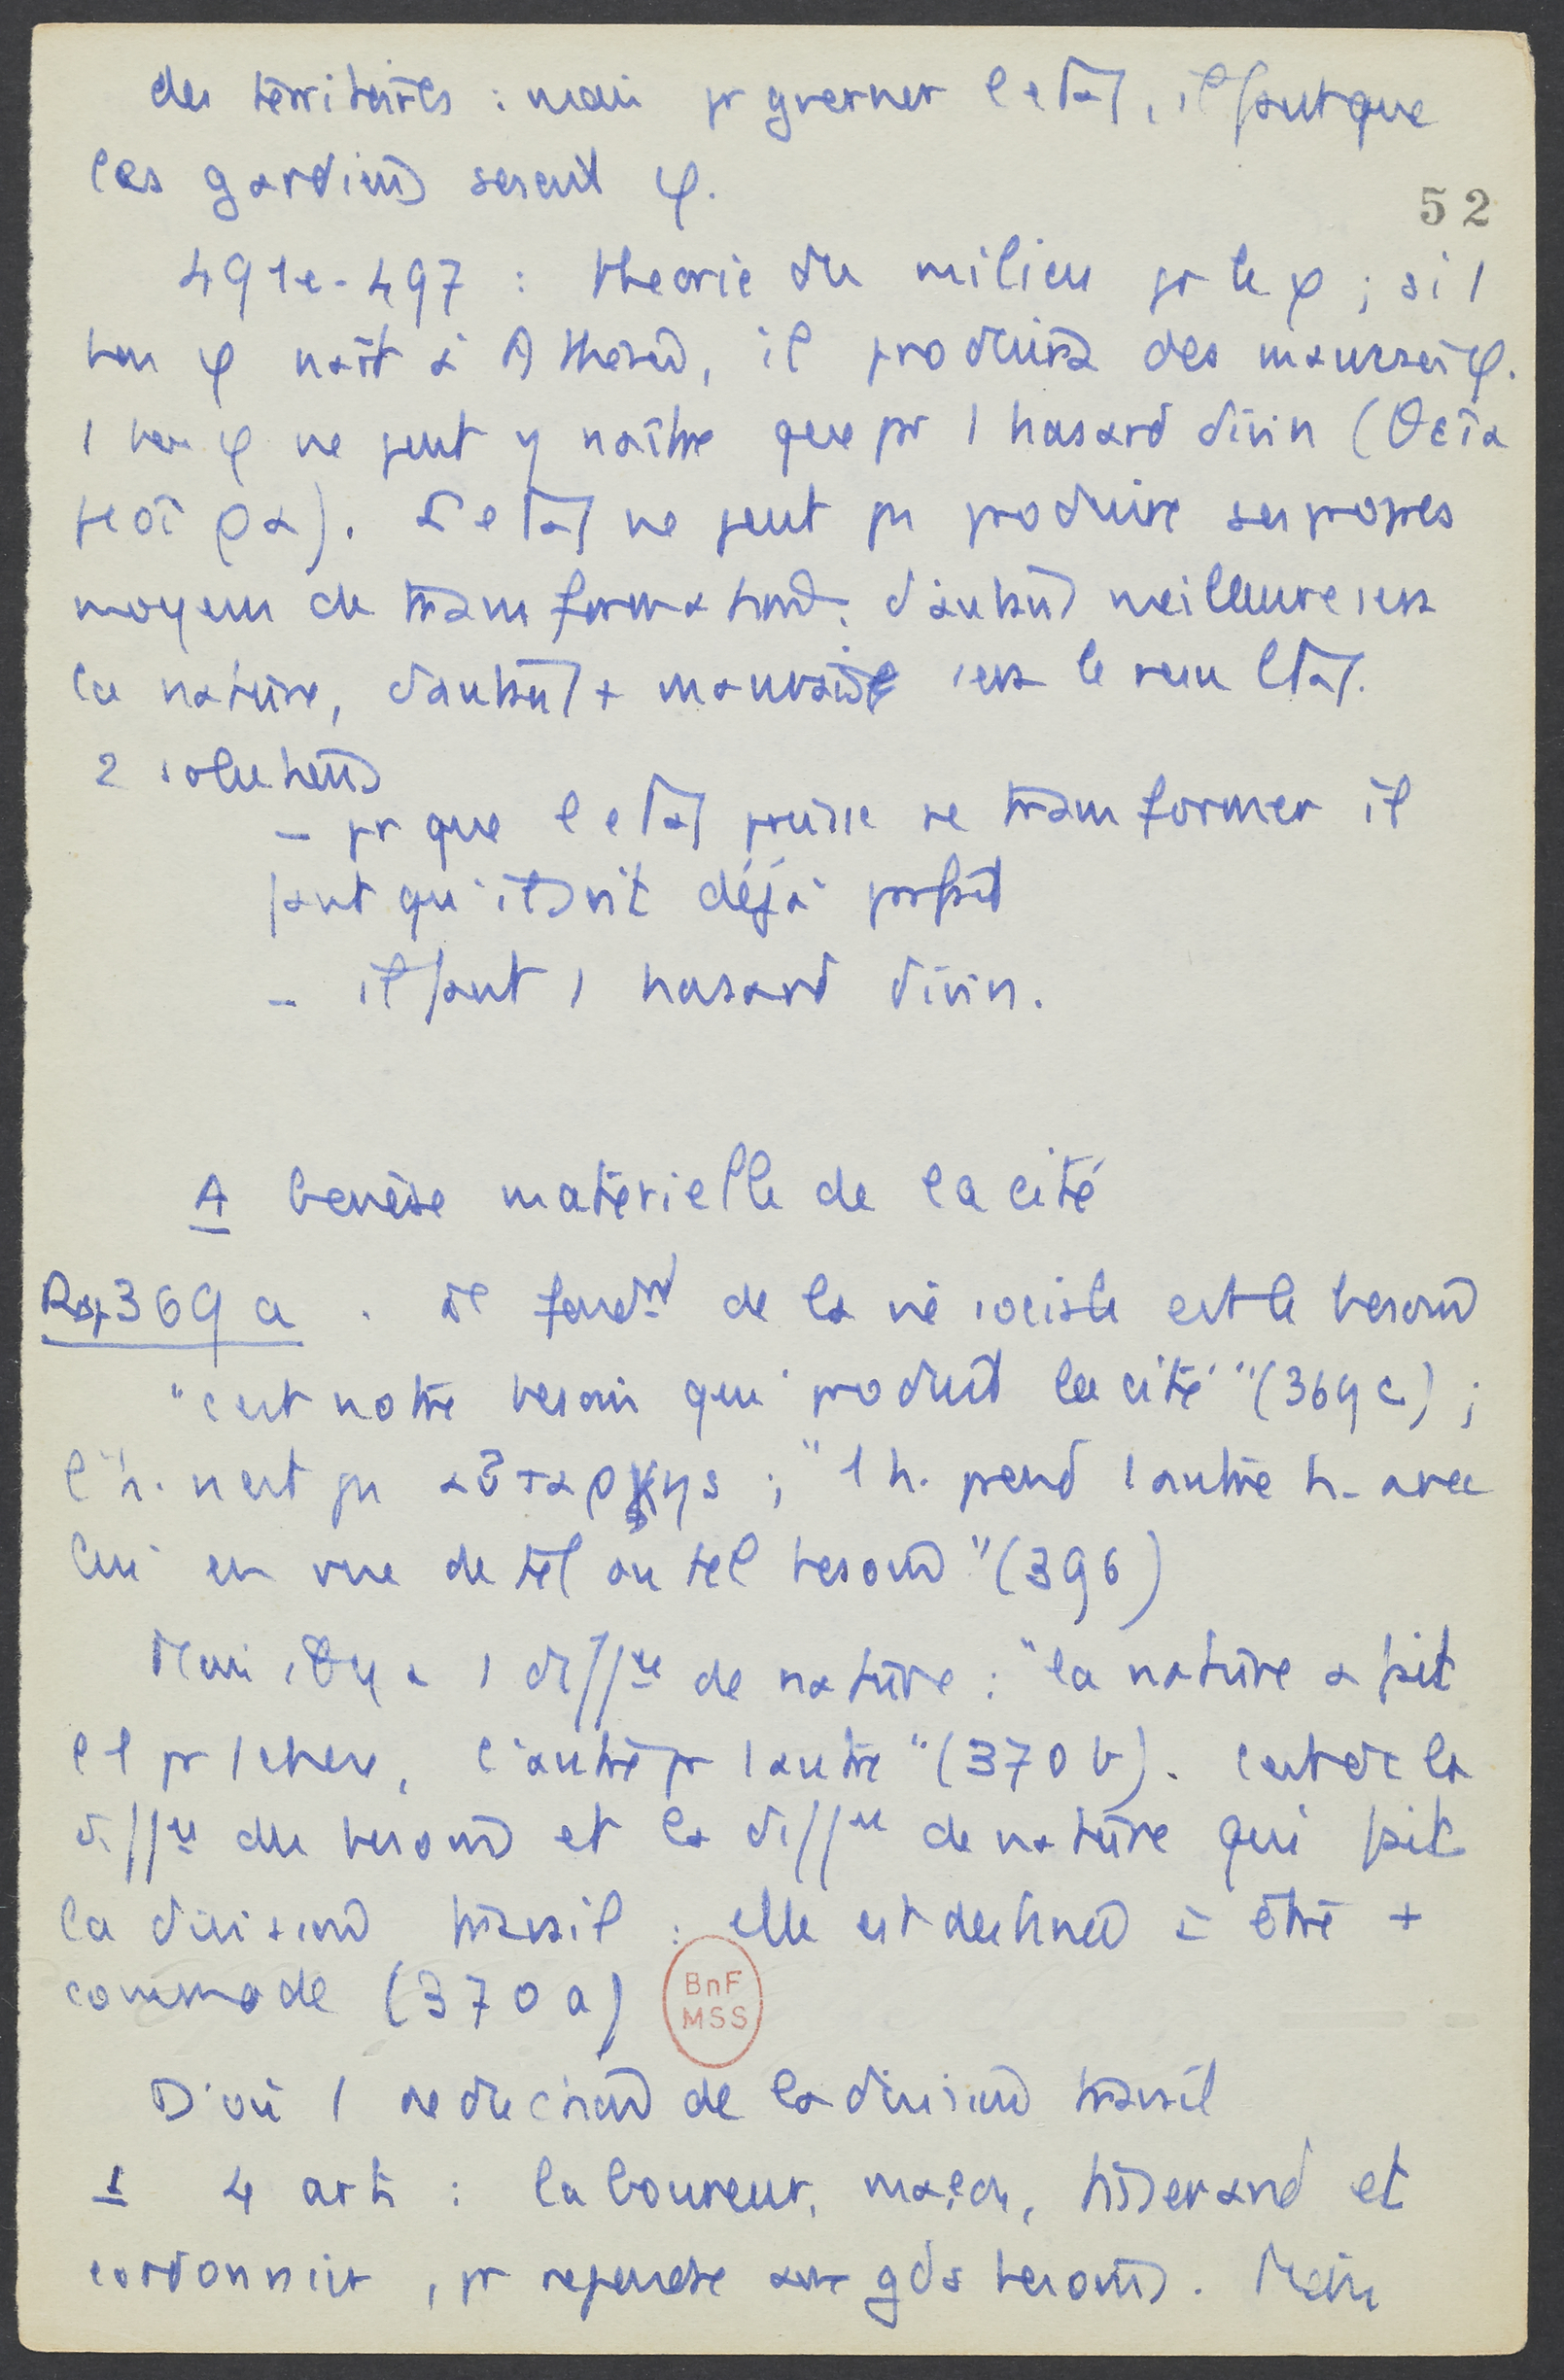 des territoires : mais pr gouverner l'etat, il faut que
les gardiens soient φ.
52
491e-497 : theorie du milieu pr le φ ; si 1
bon φ naît à Athènes, il produira des mauvais φ.
1 bon φ ne peut y naître que par 1 hasard divin (θεῖα
μοῖρα). L'etat ne peut pas produire ses propres
moyens de transformation : d'autant meilleure sera
la nature, d'autant + mauvaise sera le resultat.
2 solutions
– pr que l'etat puisse se transformer il
faut qu'il soit déjà parfait
– il faut 1 hasard divin.
A Genèse matérielle de la cité
Rep 369 a . Le fondmt de la vie sociale est le besoin
"c'est notre besoin qui produit la cité" (369 c) ;
l'h. n'est pas αὐταρκης ; "1 h. prend 1 autre h. avec
lui en vue de tel ou tel besoin" (396)
Mais il y a 1 diffce de nature : "la nature a fait
l'1 pr 1 chose, l'autre pr 1 autre" (370 b). C'est dc la
diffce du besoin et la diffce de nature qui fait
la division travail : elle est destinée à être +
commode (370 a)
BnF
MSS
D'où 1 deduction de la division travail
1 4 arts : laboureur, maçon, tisserand et
cordonnier, pr repondre aux gds besoins. Mais